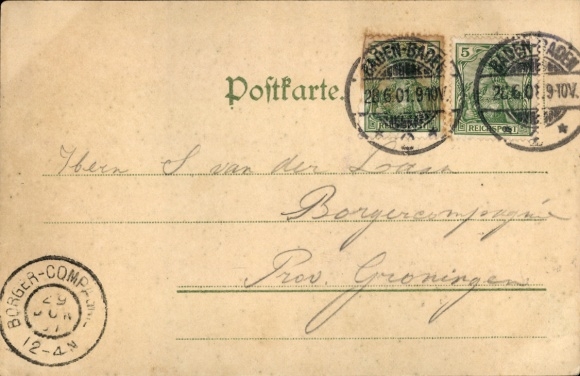 Postkarte.
BADEN-BADEN
28.6.01.9-10V.
2
BADEN-BADEN
28.6.01.9-10V.
5
REICHSPOST
Hern S van der
Borgercompagnie
Prov. Groningen
BORGER-COMPAGNIE
29
JUN
01
12-4N